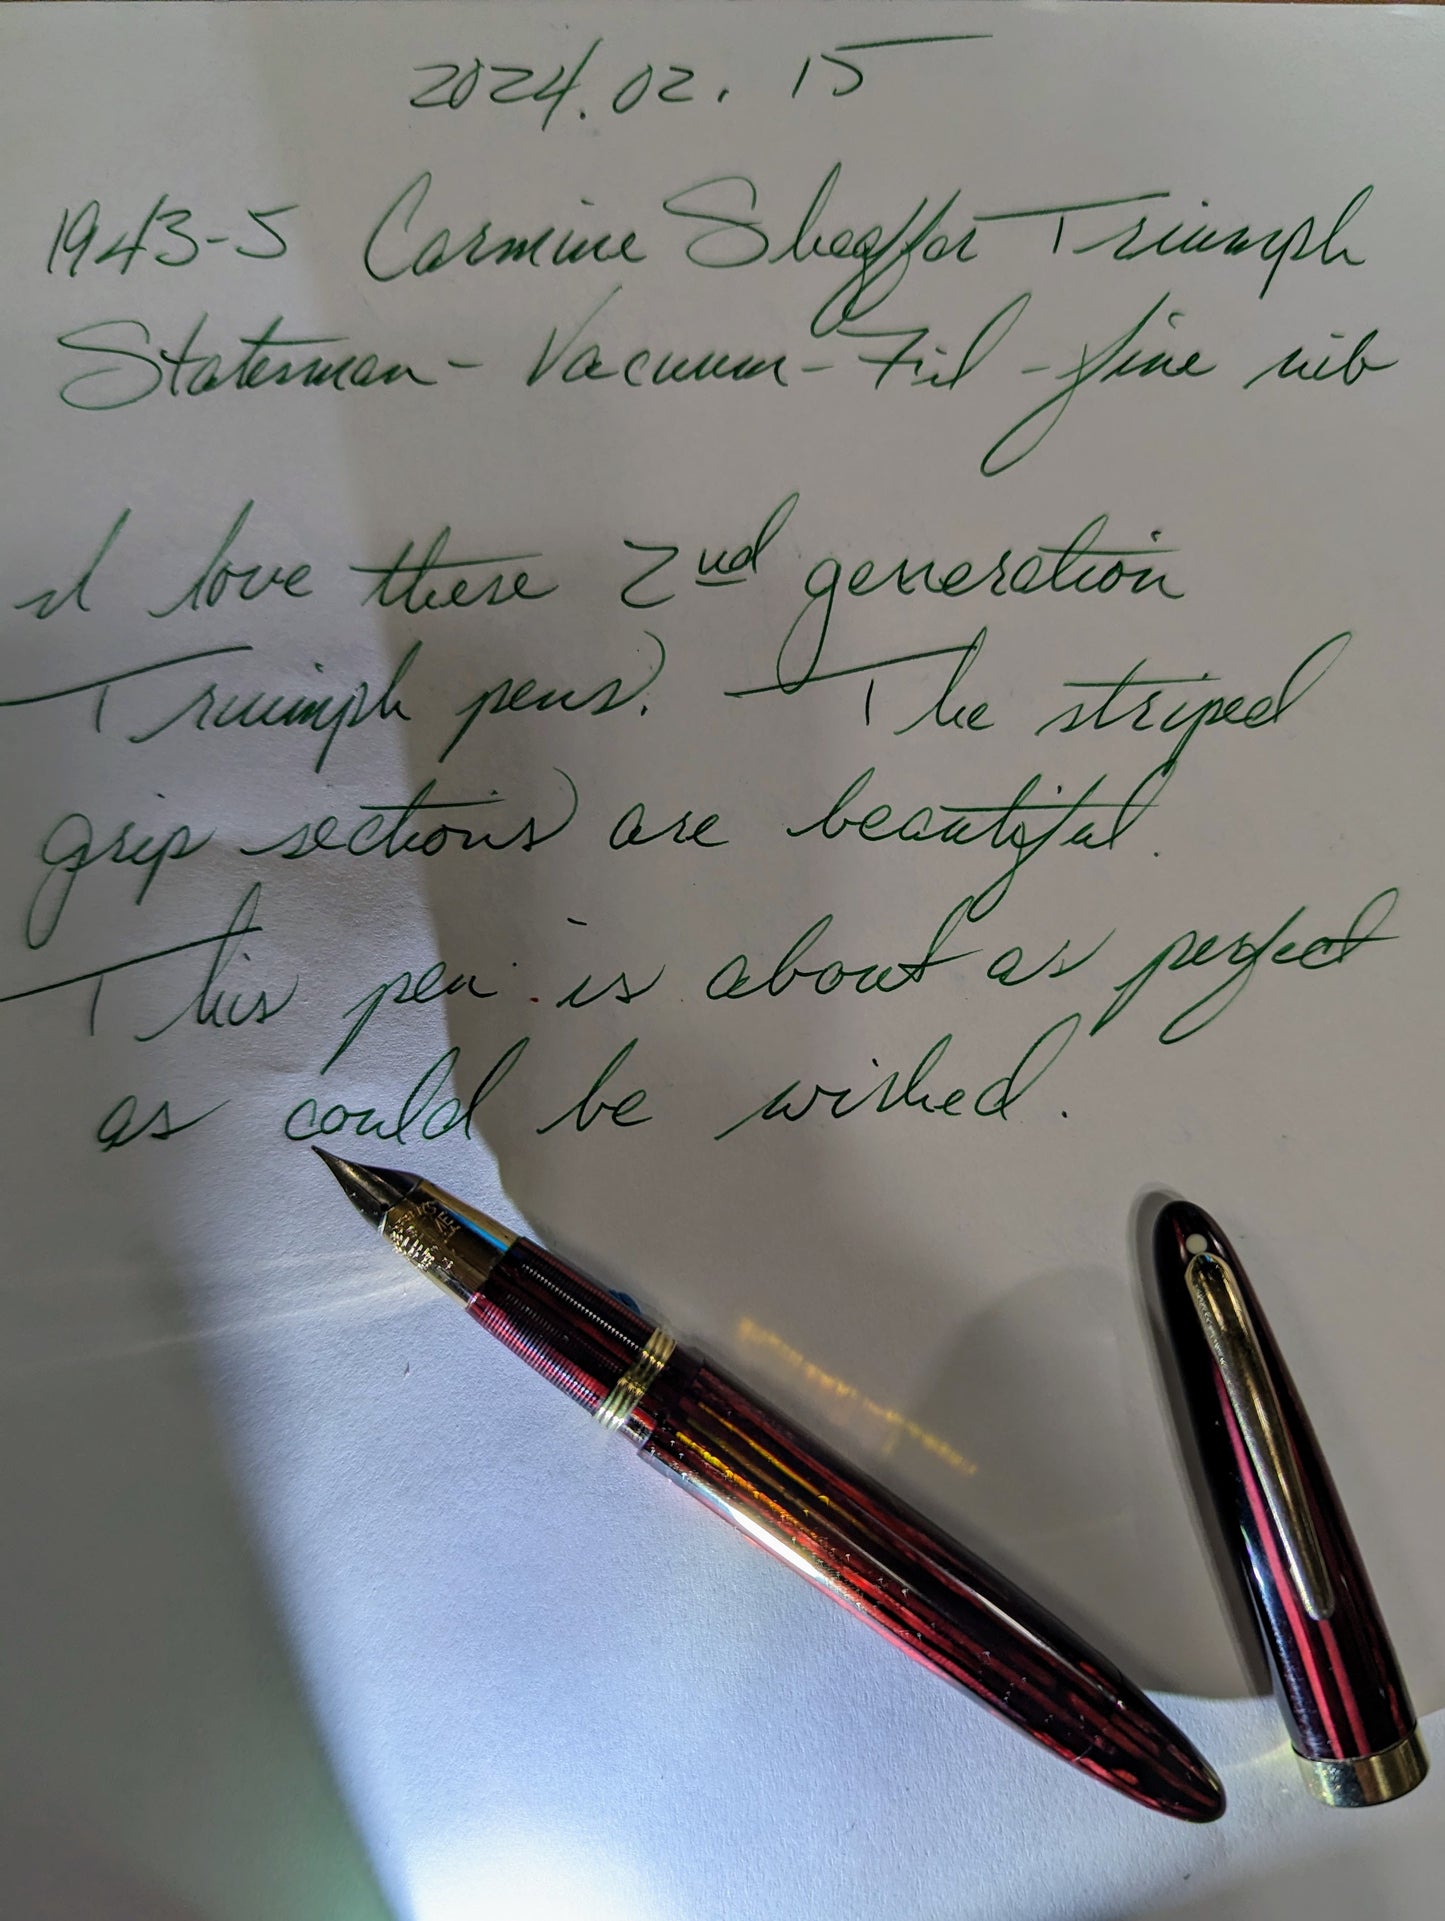 2024.02.15
1943-5 Carmine Sheaffer Triumph
Statesman - Vacuum-Fil - fine nib
I love these 2nd generation
Triumph pens. The striped
grip sections are beautiful.
This pen is about as perfect
as could be wished.